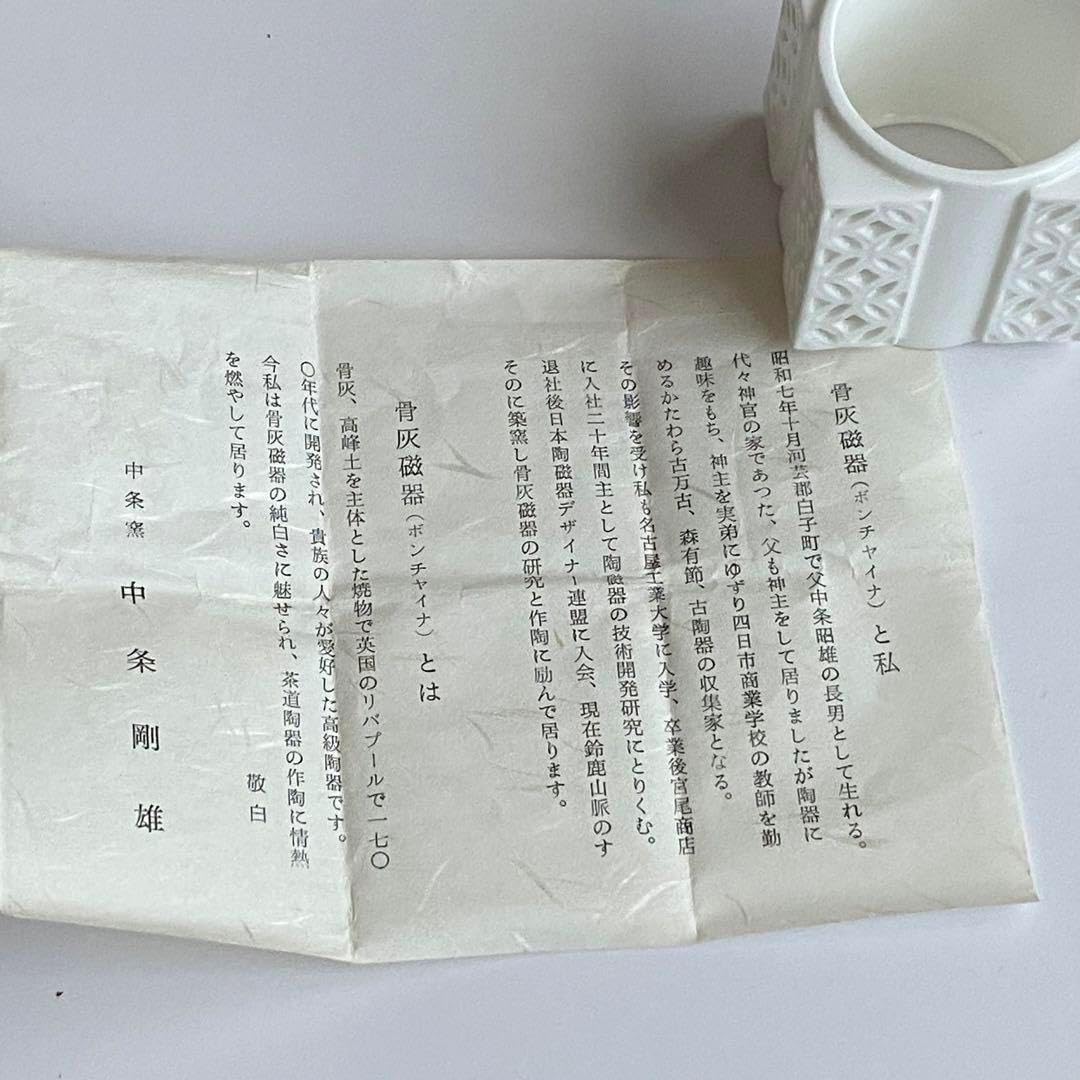 骨灰磁器（ボンチャイナ）と私
昭和七年十月河芸郡白子町で父中条昭雄の長男として生れる。
代々神官の家であつた、父も神主をして居りましたが陶器に
趣味をもち、神主を実弟にゆずり四日市商業学校の教師を勤
めるかたわら古万古、森有節、古陶器の収集家となる。
その影響を受け私も名古屋工業大学に入学、卒業後宮尾商店
に入社二十年間主として陶磁器の技術開発研究にとりくむ。
退社後日本陶磁器デザイナー連盟に入会、現在鈴鹿山脈のす
そのに築窯し骨灰磁器の研究と作陶に励んで居ります。
骨灰磁器（ボンチャイナ）とは
骨灰、高峰土を主体とした焼物で英国のリバプールで一七〇
〇年代に開発され、貴族の人々が愛好した高級陶器です。
今私は骨灰磁器の純白さに魅せられ、茶道陶器の作陶に情熱
を燃やして居ります。
敬白
中条窯 中条剛雄